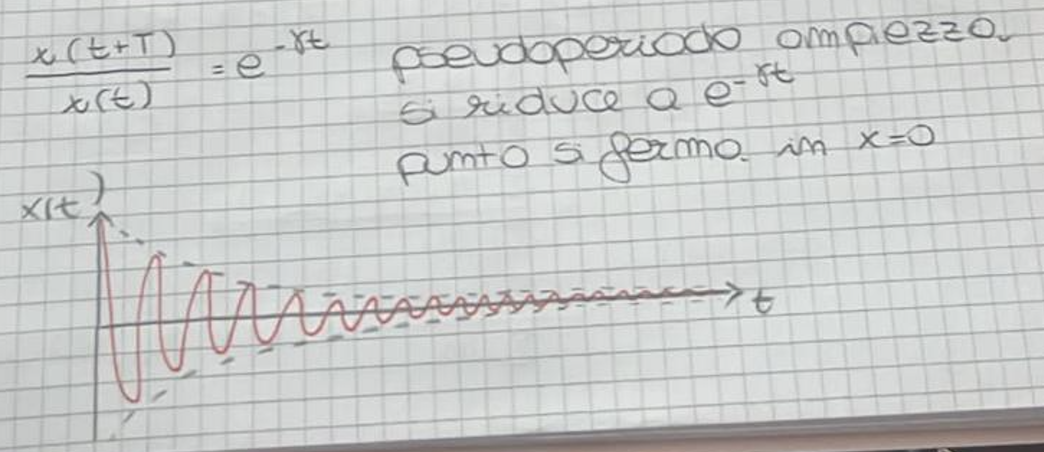 x(t+T)/x(t) = e^-γt pseudoperiodo ampiezza
si riduce a e^-γt
punto si ferma in x=0
x(t)
t